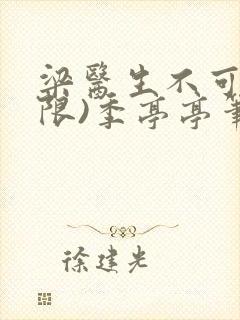 梁醫生不可
限)季亭亭筆
徐建光